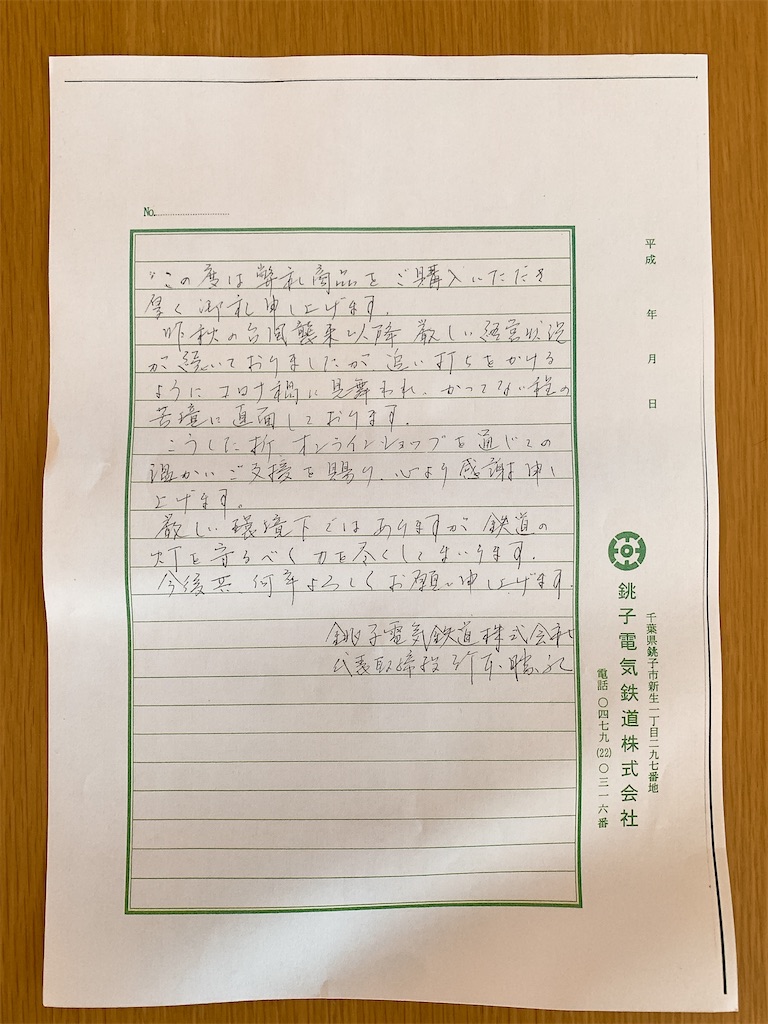 No.
この度は弊社商品をご購入いただき
厚く御礼申し上げます.
昨秋の台風襲来以降 厳しい経営状況
が続いておりましたが 追い打ちをかける
ようにコロナ禍に見舞われ、かつてない程の
苦境に直面しております.
こうした折 オンラインショップを通じての
温かいご支援を賜り、心より感謝申し
上げます。
厳しい環境下ではありますが 鉄道の
灯を守るべく力を尽くしてまいります.
今後共、何卒よろしくお願い申し上げます.
銚子電気鉄道株式会社
代表取締役 竹本勝紀
平成 年 月 日
千葉県銚子市新生一丁目二九七番地
銚子電気鉄道株式会社
電話 〇四七九(22)〇三一六番